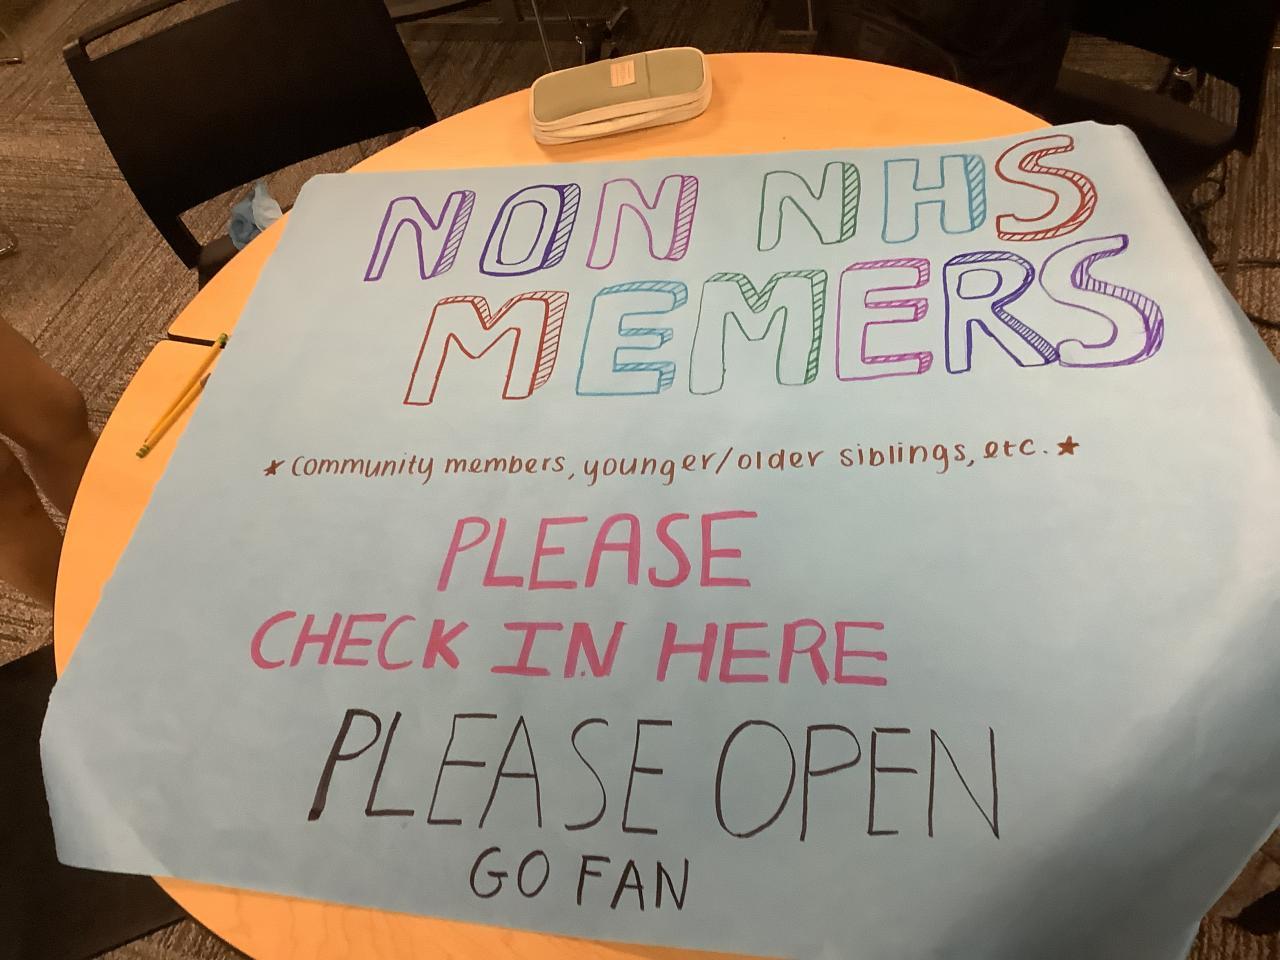 NON NHS
MEMERS
★ community members, younger/older siblings, etc. ★
PLEASE
CHECK IN HERE
PLEASE OPEN
GO FAN